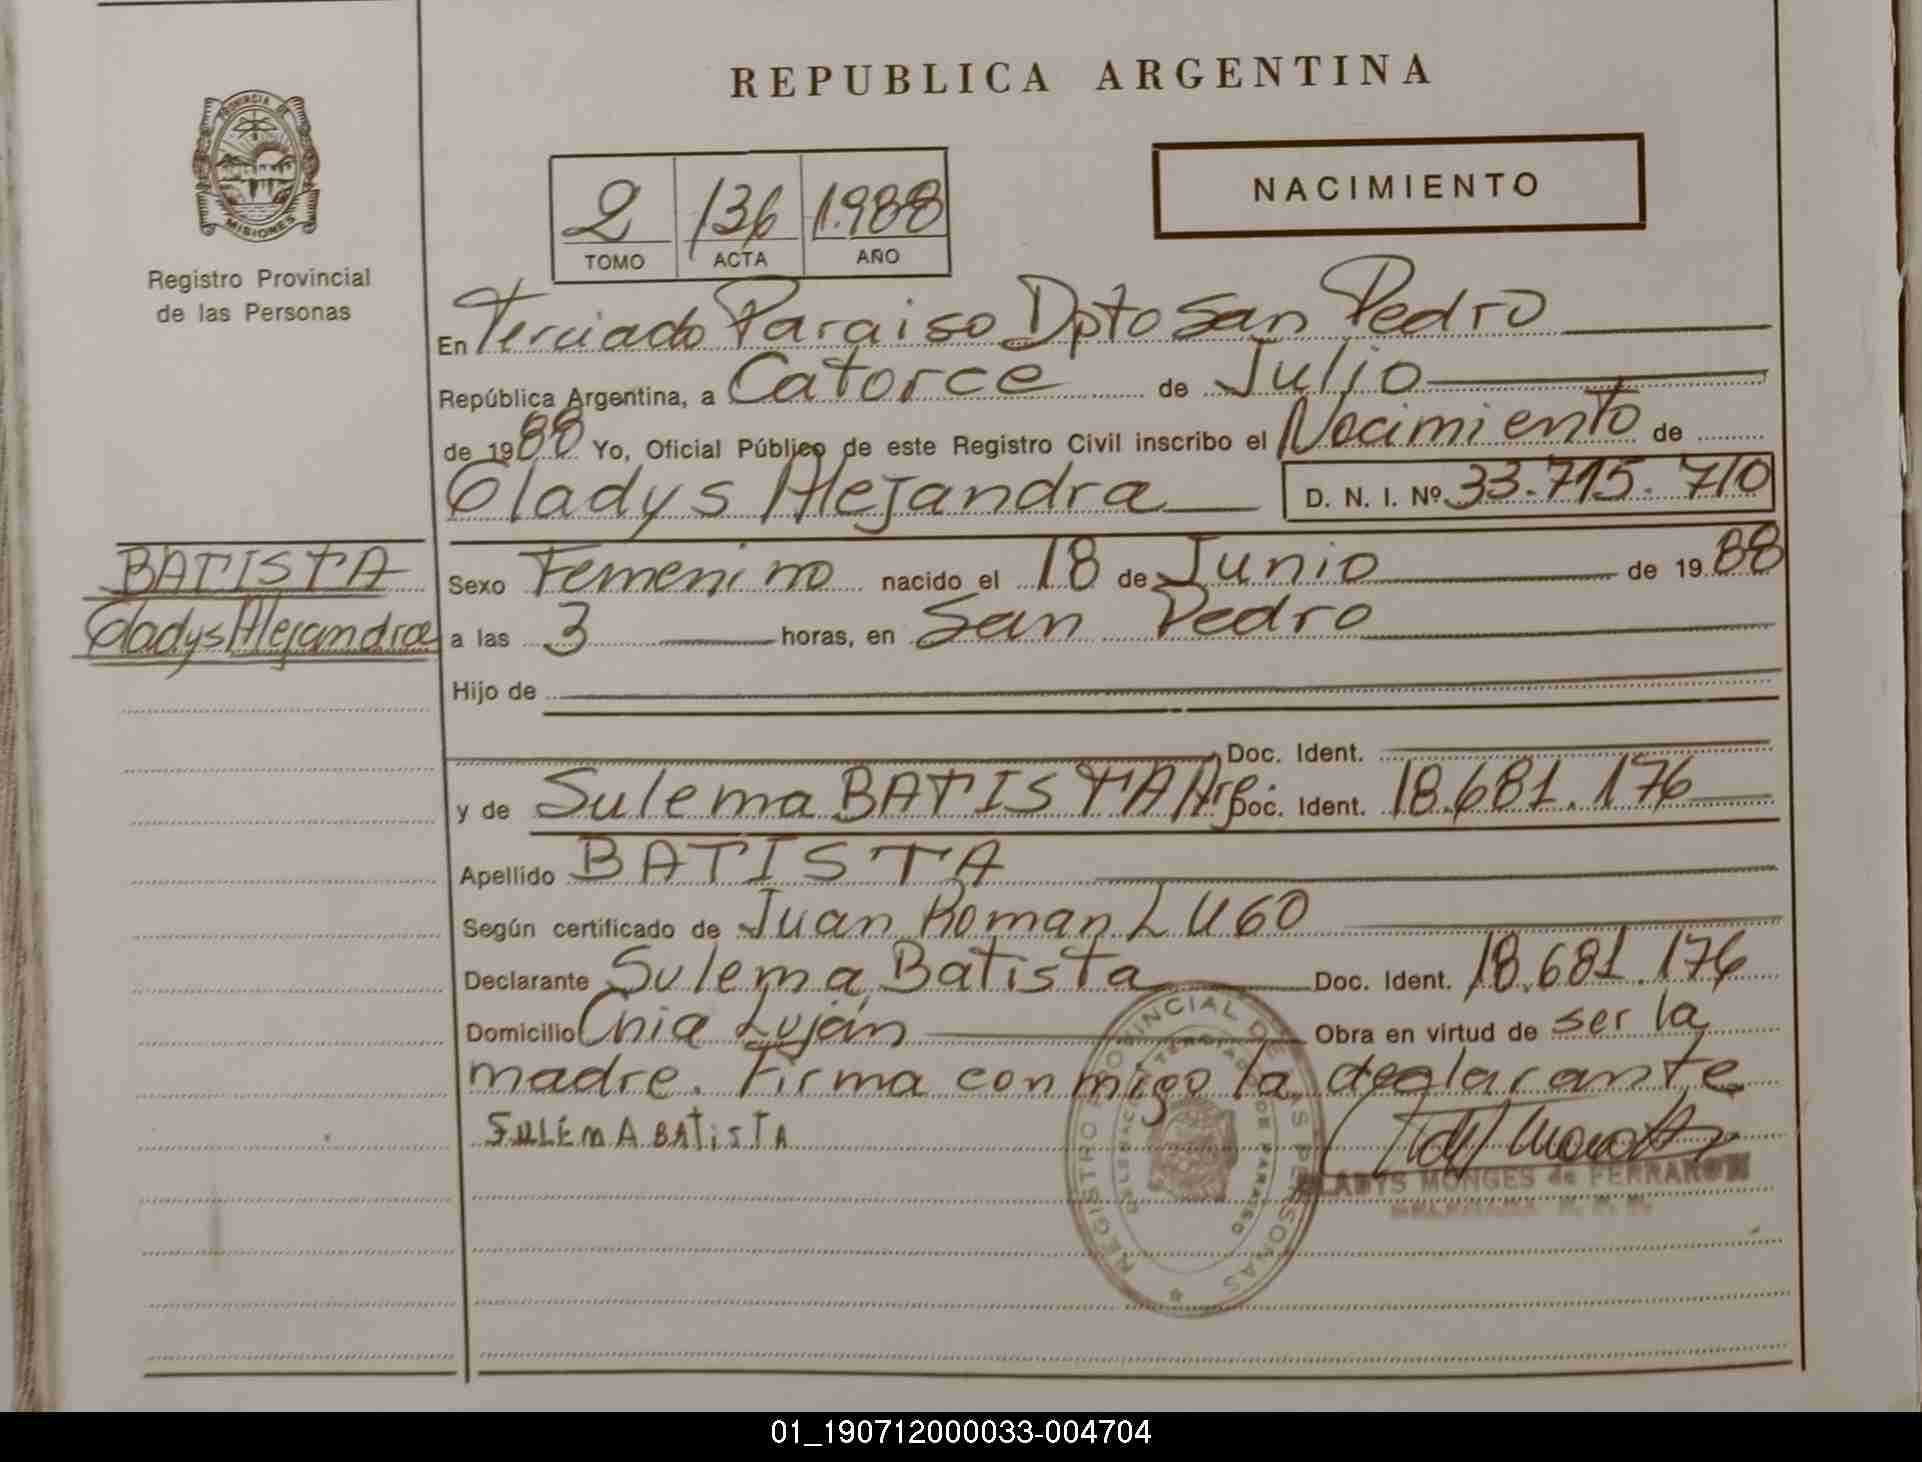 REPUBLICA ARGENTINA
PROVINCIA DE
MISIONES
Registro Provincial
de las Personas
2 136 1.988
TOMO ACTA AÑO
NACIMIENTO
En Terciado Paraiso Dpto San Pedro
República Argentina, a Catorce de Julio
de 1988 Yo, Oficial Público de este Registro Civil inscribo el Nacimiento de
Gladys Alejandra D. N. I. Nº 33.715.710
BATISTA
Gladys Alejandra
Sexo Femenino nacido el 18 de Junio de 1988
a las 3 horas, en San Pedro
Hijo de
Doc. Ident.
y de Sulema BATISTA Arg. Doc. Ident. 18.681.176
Apellido BATISTA
Según certificado de Juan Roman LUGO
Declarante Sulema Batista Doc. Ident. 18.681.176
Domicilio Cnia Luján Obra en virtud de ser la
madre. Firma conmigo la declarante
SULEMA BATISTA
REGISTRO PROVINCIAL DE LAS PERSONAS
TERCIADO PARAISO
GLADYS MONGES de
01_190712000033-004704